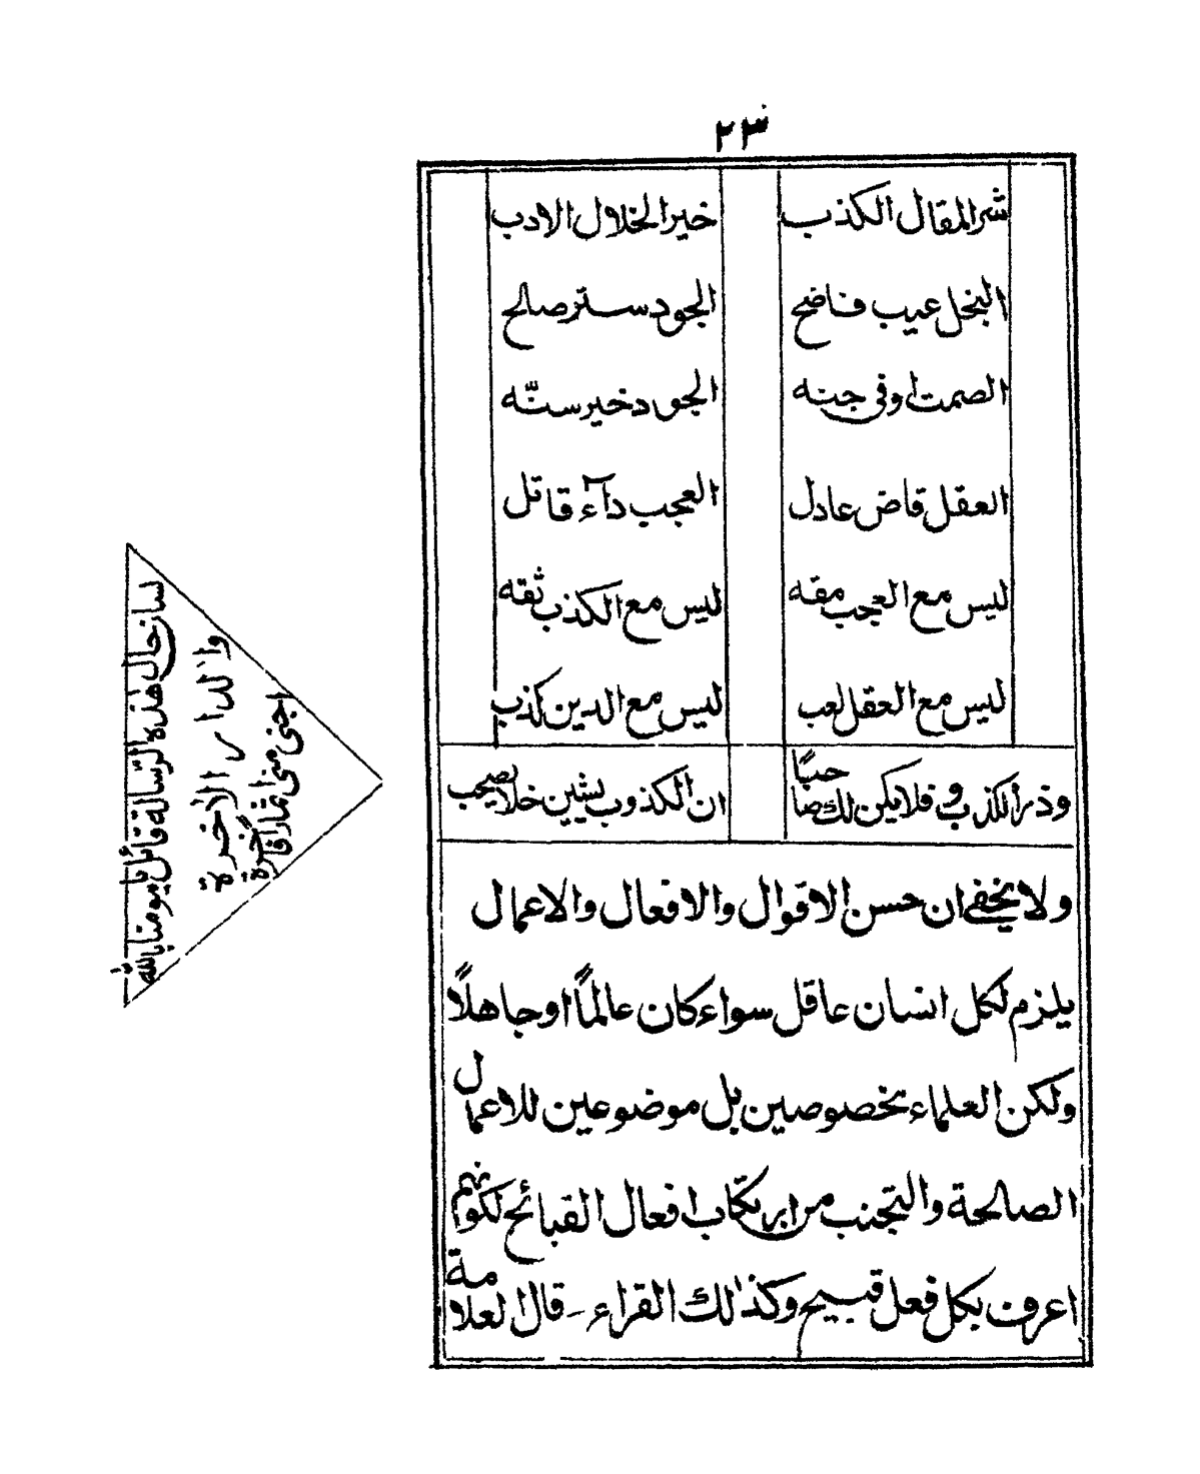 ٢٣
شر المقال الكذب خير الخلال الادب
البخل عيب فاضح الجود ستر صالح
الصمت اوفى جنه الجود خير سنّه
العقل قاض عادل العجب دآء قاتل
ليس مع العجب مقه ليس مع الكذب ثقه
ليس مع العقل لعب ليس مع الدين كذب
وذر الكذوب فلا يكن لك صاحبًا ان الكذوب يشين خلا يصحب
ولا يخفى ان حسن الاقوال والافعال والاعمال
يلزم لكل انسان عاقل سواء كان عالمًا او جاهلًا
ولكن العلماء مخصوصين بل موضوعين للاعمال
الصالحة والتجنب من ارتكاب افعال القبائح لكونهم
اعرف بكل فعل قبيح وكذلك القراء قال العلامة
لسان حال هذه الرّسالة قائل يا مومنا بالله
والدار الأخرة
اجنى منى ثمارا فاخرة